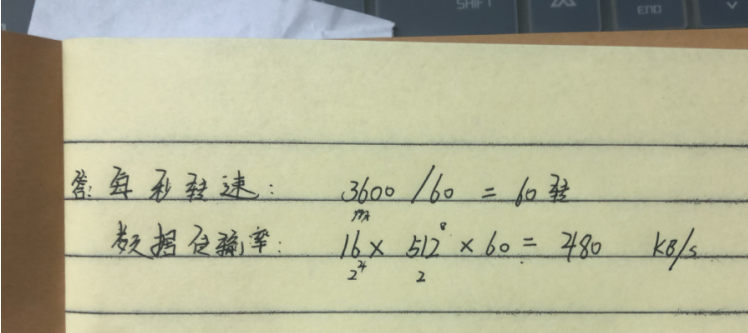 SHIFT
END
答: 每秒转速: 3600 / 60 = 60 转
数据传输率: 16 × 512 × 60 = 480 KB/s
2⁴ 2⁸